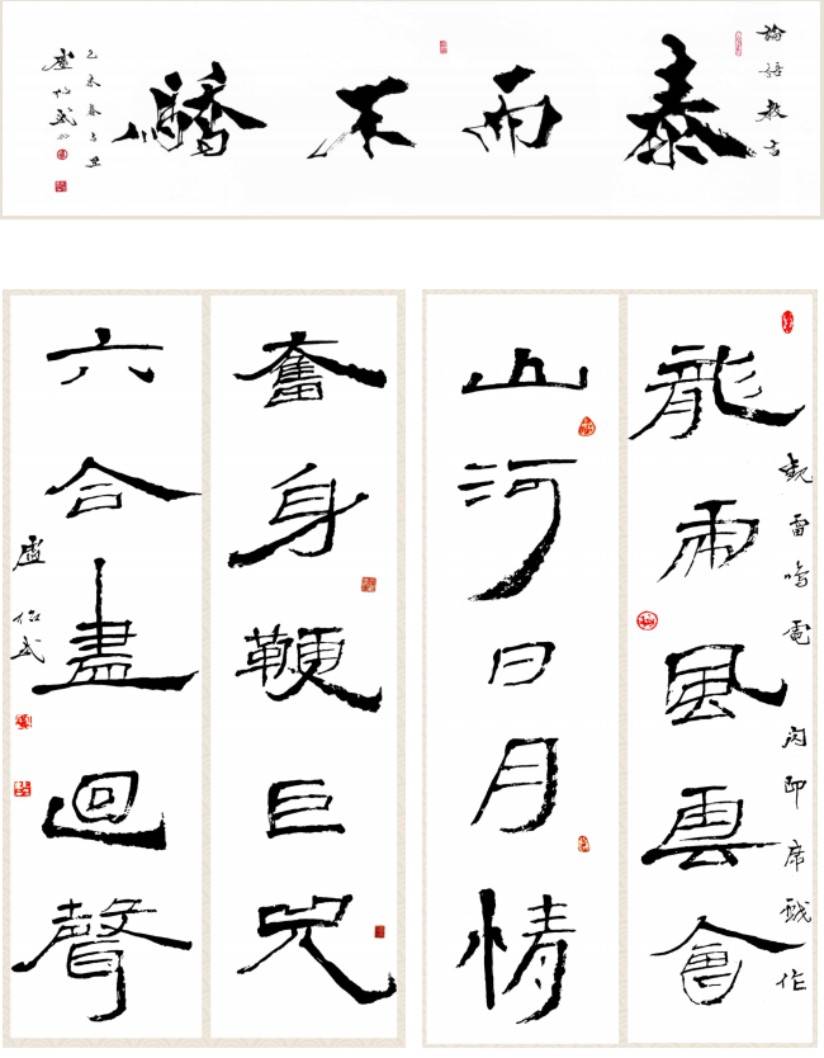 論語教言
泰而不驕
乙未春
盧 武
觀雷鳴電閃即席戲作
龍雨風雲會
山河日月情
奮身鞭巨兕
六合盡迴聲
盧 武